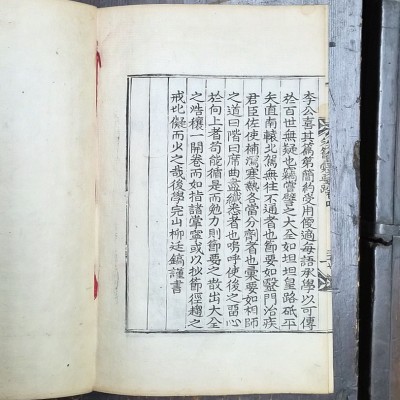 李公喜其篇第簡約受用俊適每語承學以可傳
於百世無疑也竊嘗譬之大全如坦坦皇路砥平
矢直南轅北駕無往不通者也節要如醫門治疾
君臣佐使補瀉寒熱各當分劑者也彙要如相師
之道曰階曰席曲盡纖悉者也嗚呼使後之留心
於向上者苟能循是而勉力則節要之散出大全
之浩穰一開卷而如指諸掌寧或以抄節徑趨之
戒比儗而少之哉後學完山柳廷鎬謹書